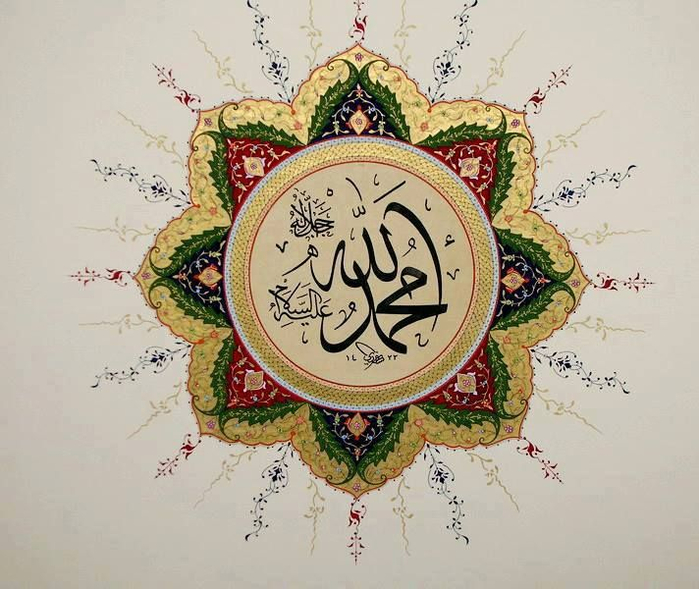 الله جل جلاله
محمد عليه السلام
١٤٢٣